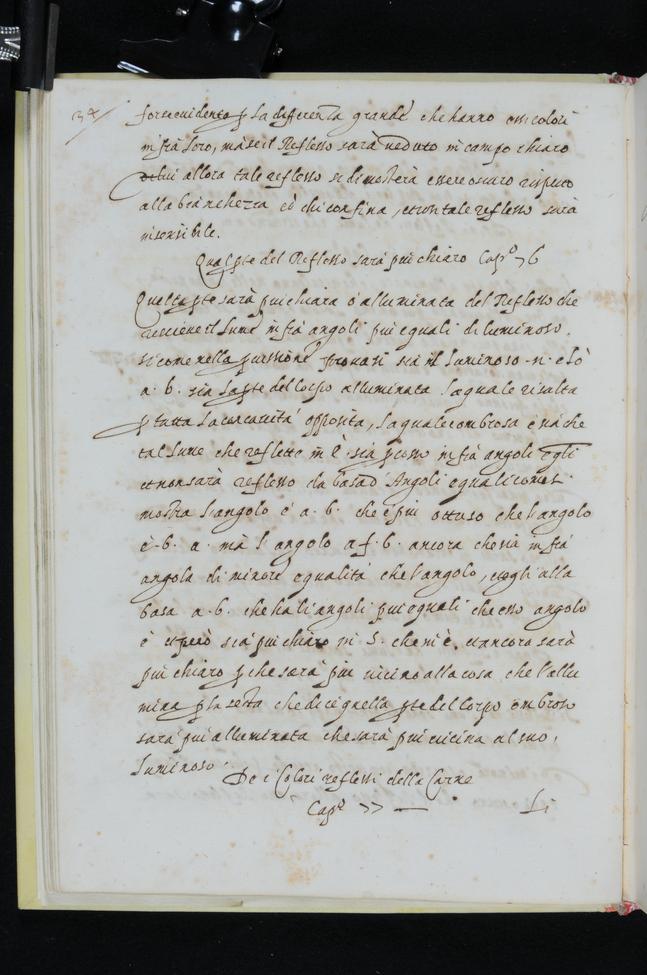 34
forse evidente p la differenza grande che hanno essi colori
in frà loro, mà se il Reflesso sarà veduto in campo chiaro
di lui allora tale reflesso si dimosterà essere oscuro rispetto
alla bianchezza cō chi confina, et un tale reflesso sarà
insensibile.
Qual pte del Reflesso sarà piu chiaro Capº 76
Quella pte sarà piu chiara o alluminata del Reflesso che
riceve il lume in frà angoli piu eguali di luminoso.
si come nella pussione trovasi sia il luminoso. n. e lo
a. b. sia la pte del corpo alluminata la quale risalta
p tutta la concavità opposita, la quale ombrosa e sia che
tal lume che reflette in è. sia p esso in frà angoli egli
et non sarà reflesso da basa d Angoli eguali come
mostra l'angolo è a. b. che è piu ottuso che l'angolo
è. b. a. mà l'angolo a. f. b. ancora che sia in frà
angola di minore egualità che l'angolo, et egli alla
basa a. b. che ha li angoli piu eguali che esso angolo
è et però sia piu chiaro in S. che in è. et ancora sarà
piu chiaro p che sarà piu vicino alla cosa che l'allu
mina p la sesta che dice quella pte del corpo ombroso
sarà piu alluminata che sarà piu vicina al suo,
luminoso.
De i Colori reflessi della Carne
Capº 77 —
Li